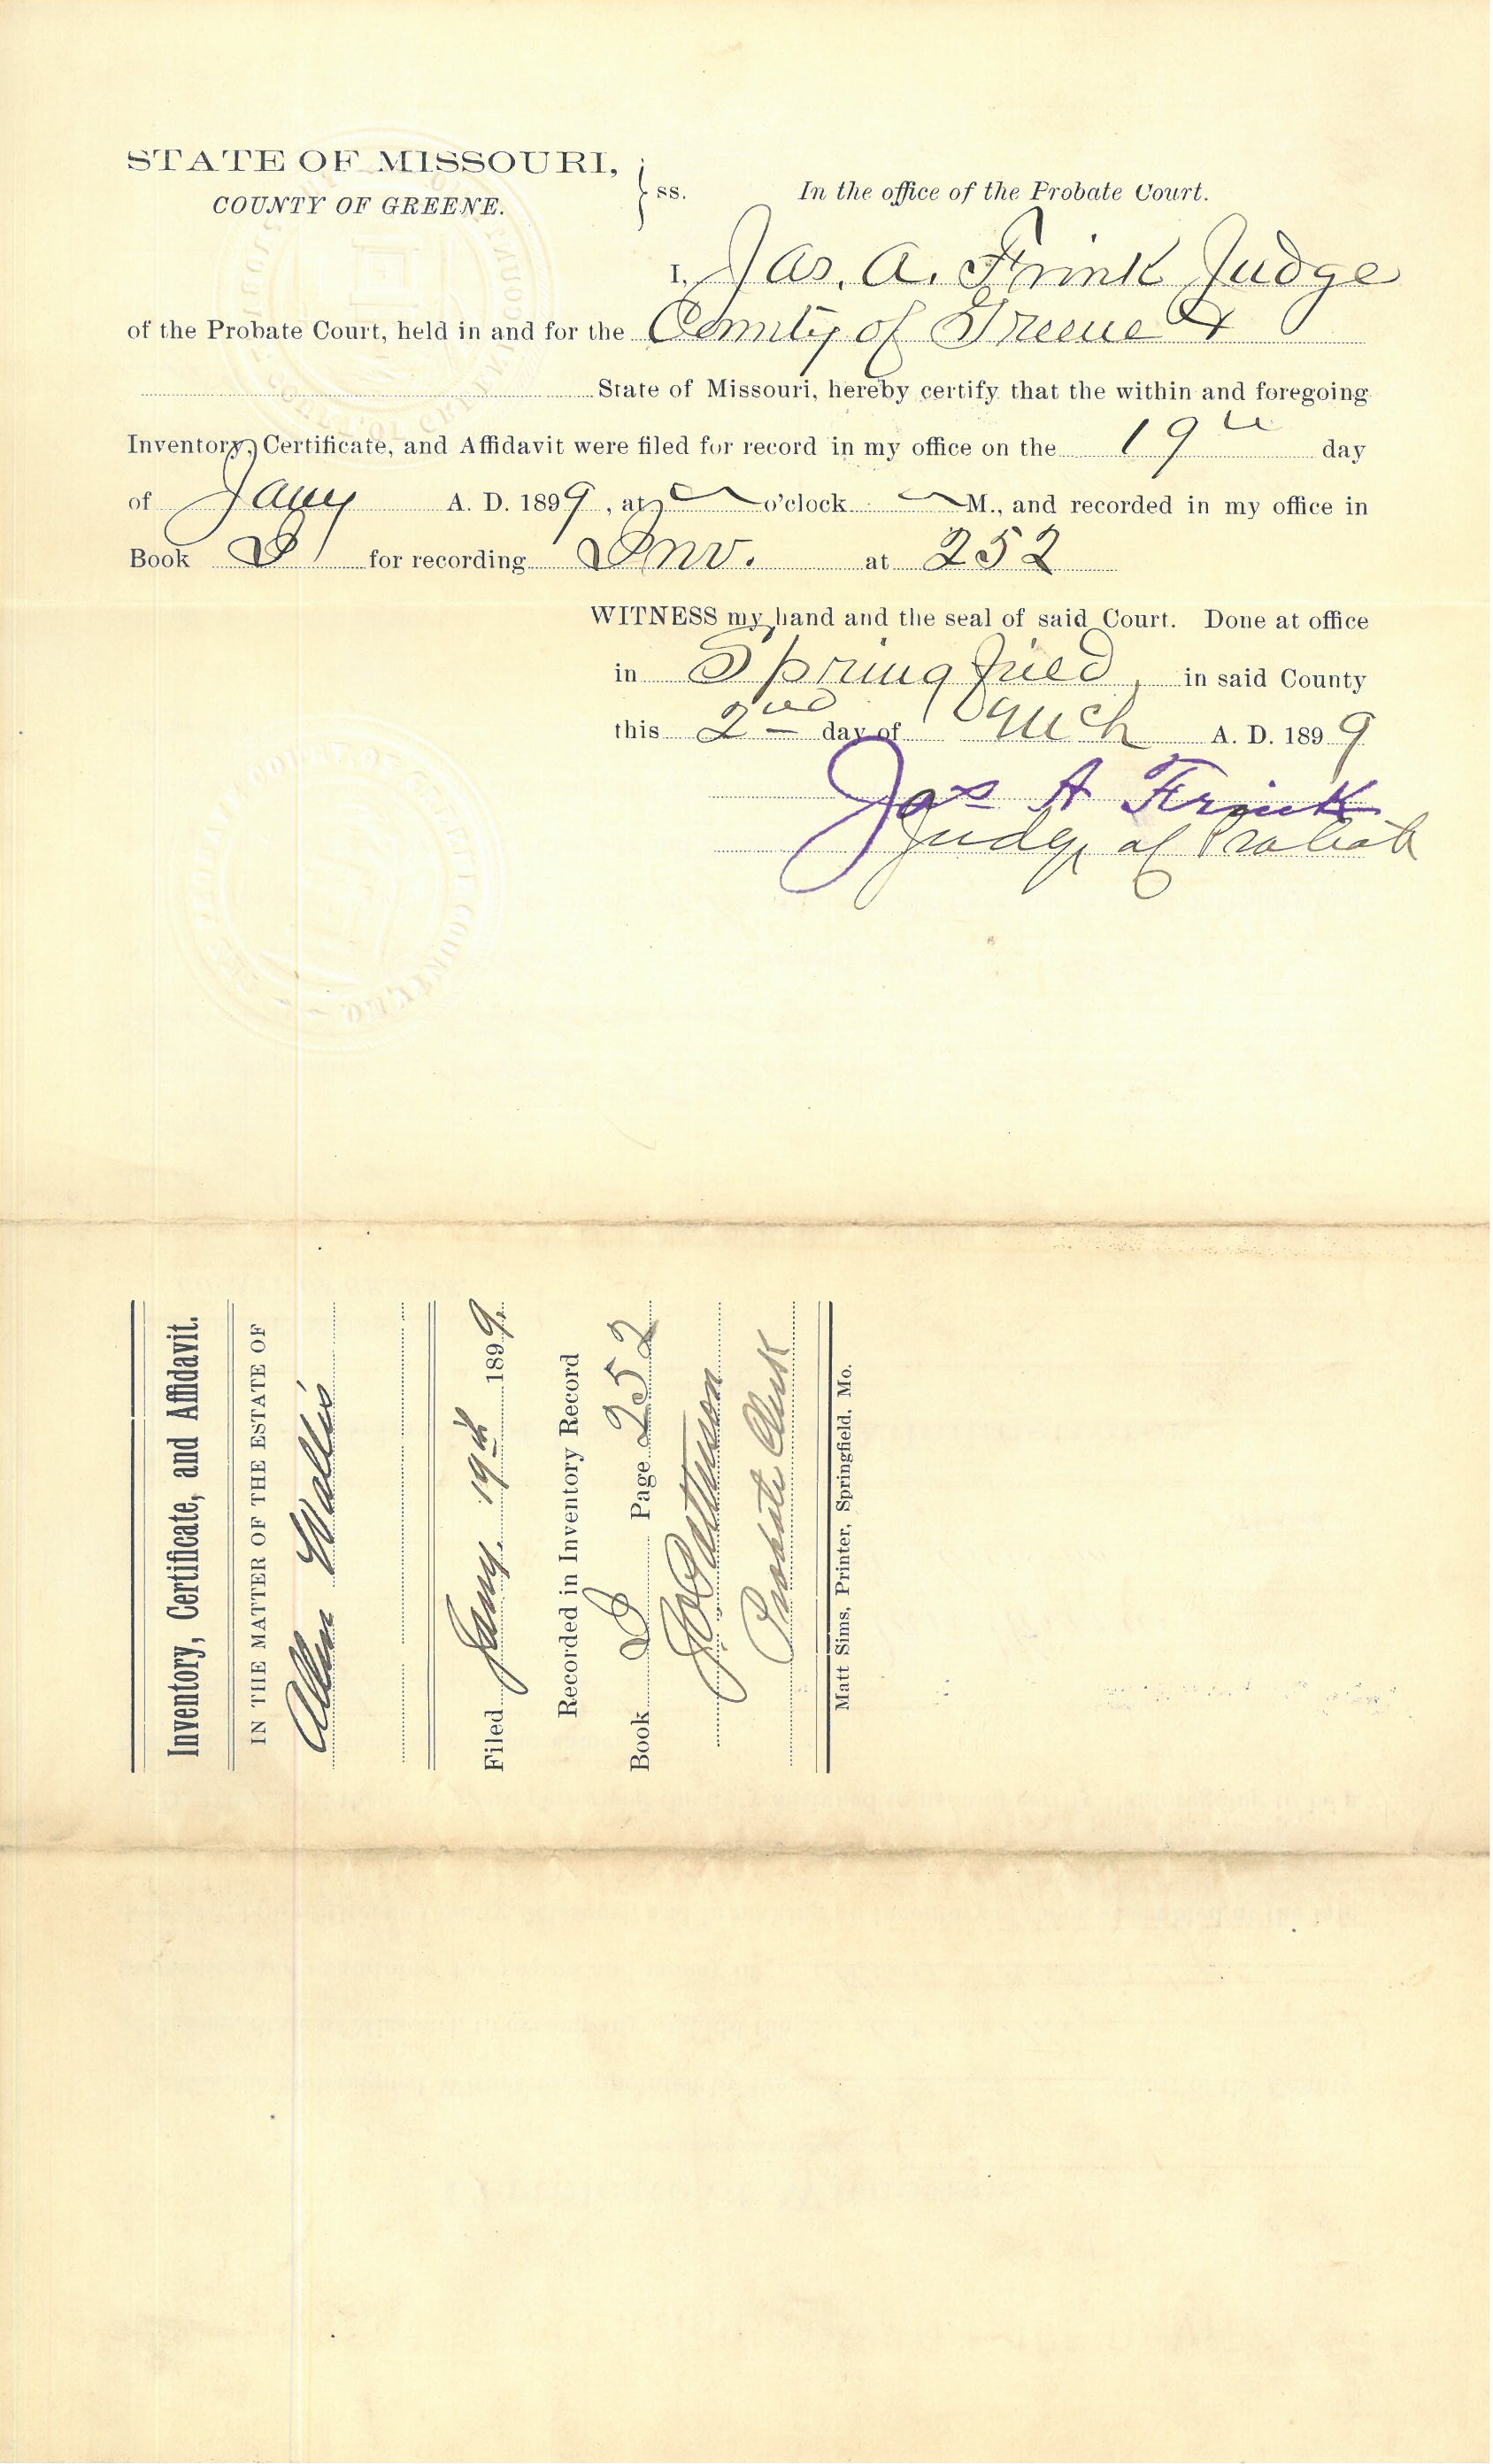 STATE OF MISSOURI,
COUNTY OF GREENE.
} ss.
In the office of the Probate Court.
I, Jas. A. Frink Judge
of the Probate Court, held in and for the County of Greene &
State of Missouri, hereby certify that the within and foregoing
Inventory, Certificate, and Affidavit were filed for record in my office on the 19th day
of Jany A. D. 1899, at o'clock M., and recorded in my office in
Book D for recording Inv. at 252
WITNESS my hand and the seal of said Court. Done at office
in Springfield, in said County
this 2nd day of Mch A. D. 1899
Jas A Frink
Judge of Probate
Inventory, Certificate, and Affidavit.
IN THE MATTER OF THE ESTATE OF
Allen Wallis
Filed Jany. 19th 1899.
Recorded in Inventory Record
Book D Page 252
Patterson
Probate Clerk
Matt Sims, Printer, Springfield, Mo.